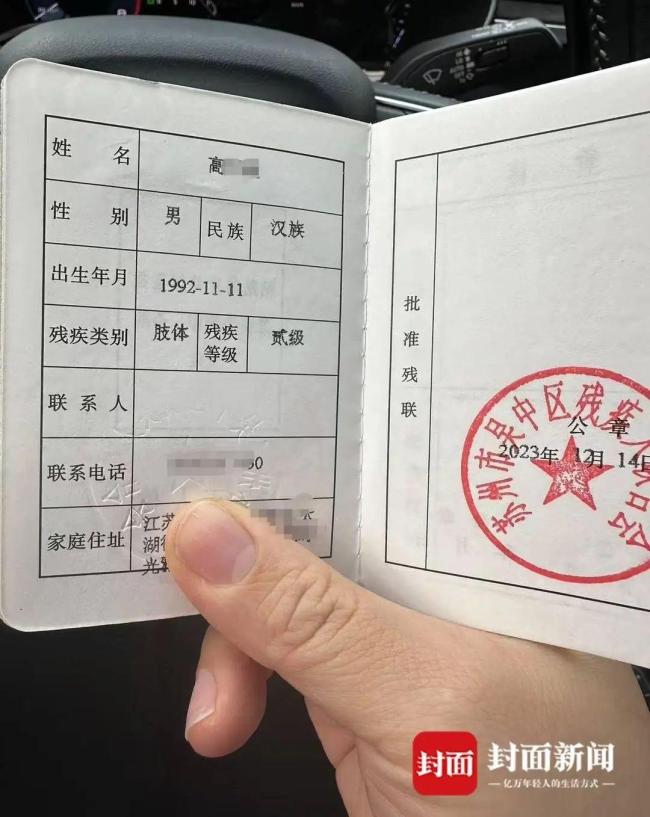 姓 名 高
性 别 男 民族 汉族
出生年月 1992-11-11
残疾类别 肢体 残疾等级 贰级
联系人
联系电话 0
家庭住址 江苏
湖
光
批准残联
苏州市吴中区残疾人联合会
公 章
2023年 12月 14日
封面 封面新闻
亿万年轻人的生活方式